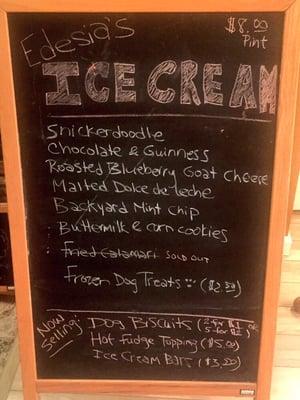 Edesia's
$8.00
Pint
ICE CREAM
Snickerdoodle
Chocolate & Guinness
Roasted Blueberry Goat Cheese
Malted Dolce de leche
Backyard Mint Chip
Buttermilk & corn cookies
Fried Calamari SOLD OUT
Frozen Dog Treats ($2.50)
Now
Selling:
Dog Biscuits (2 for $1 or
5 for $2)
Hot Fudge Topping ($5.00)
Ice Cream Bars ($3.50)